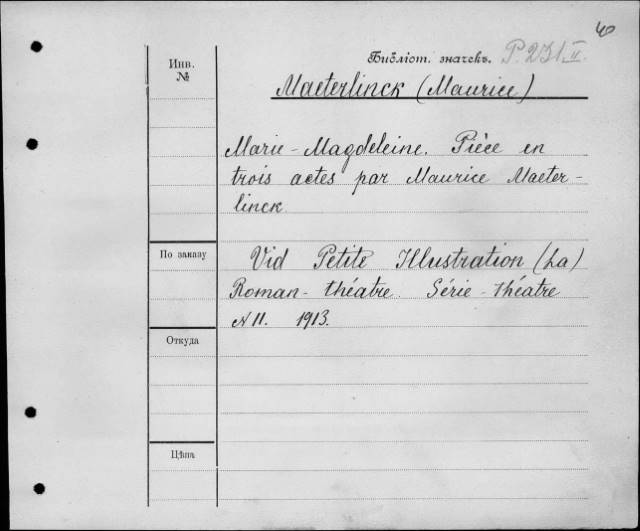 40
Библіот. значекъ. P. 231. II.
Инв.
№
Maeterlinck (Maurice)
Marie-Magdeleine. Pièce en
trois actes par Maurice Maeter-
linck
По заказу
Vid Petite Illustration (La)
Roman-théatre. Série-théatre
N 11. 1913.
Откуда
Цѣна